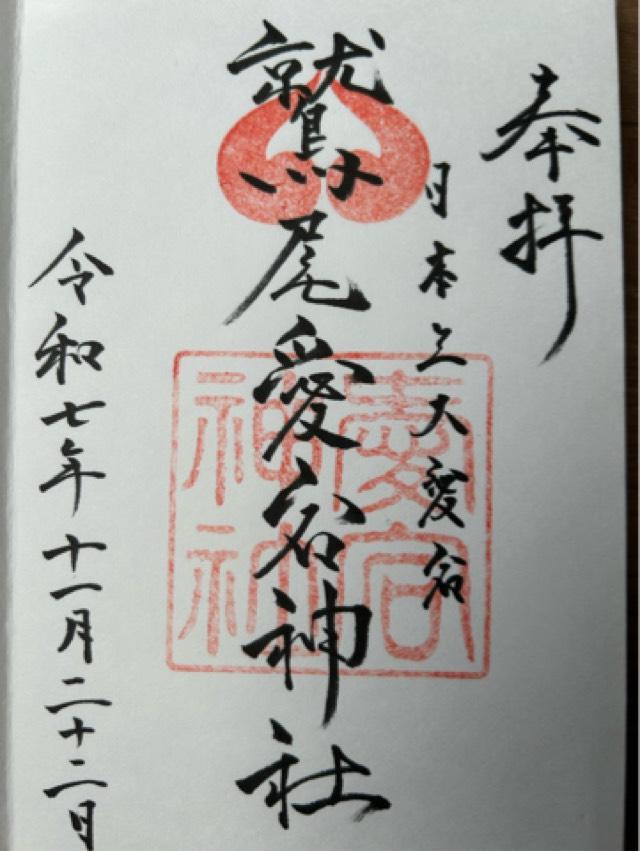 奉拝
日本三大愛宕
鷲尾愛宕神社
愛宕神社
令和七年十一月二十二日